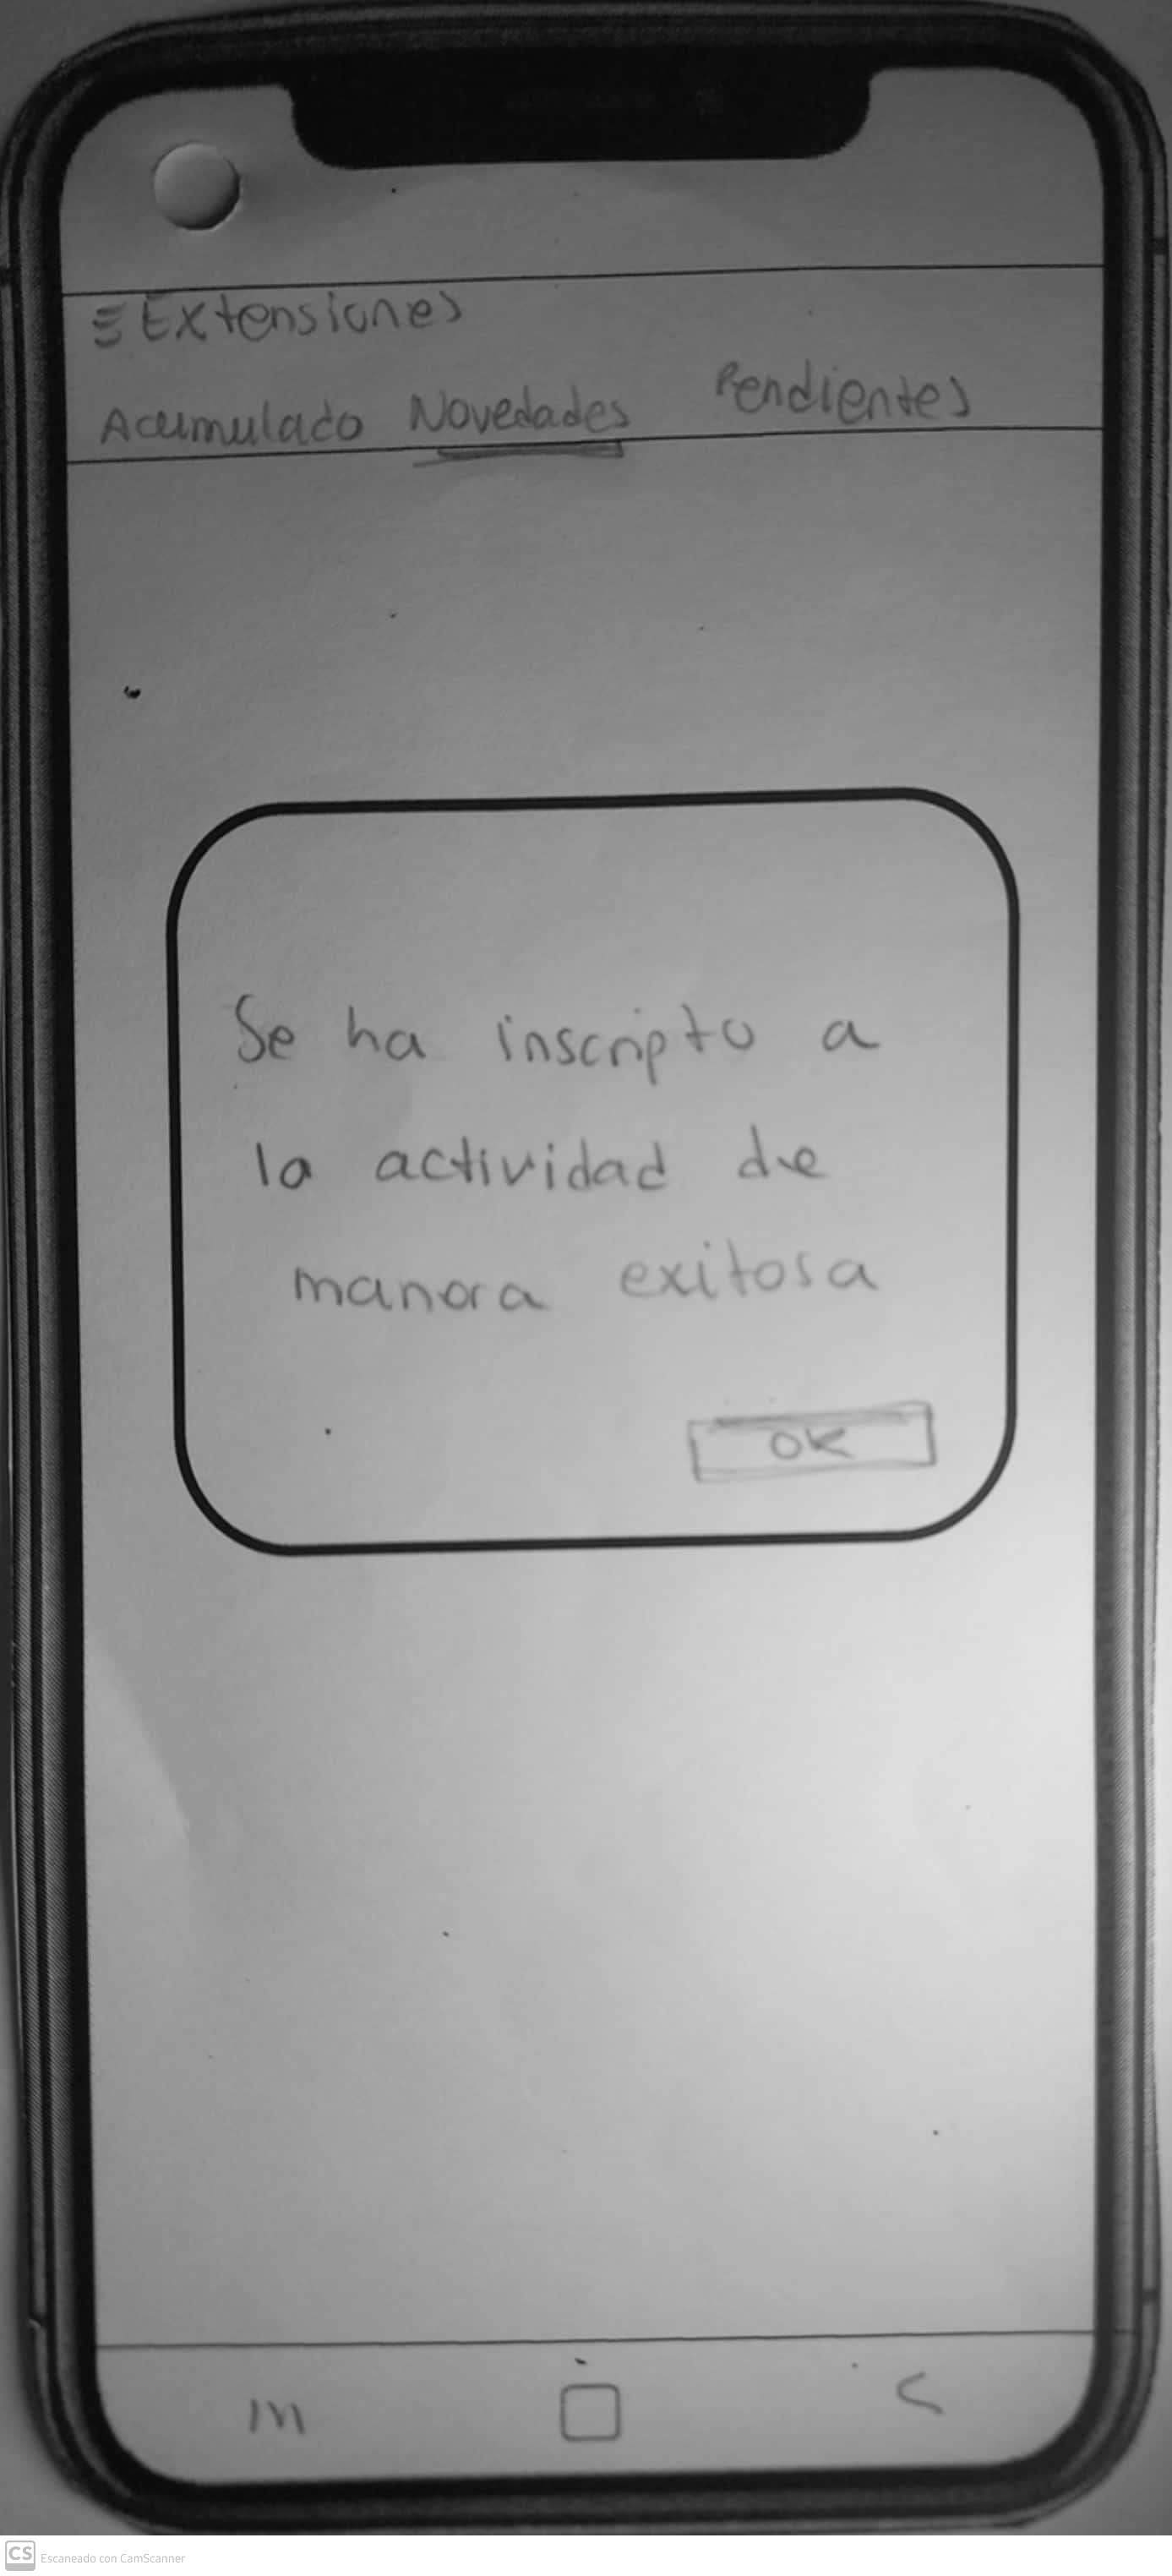 Extensiones
Acumulado Novedades Pendientes
Se ha inscripto a
la actividad de
manera exitosa
OK
CS Escaneado con CamScanner